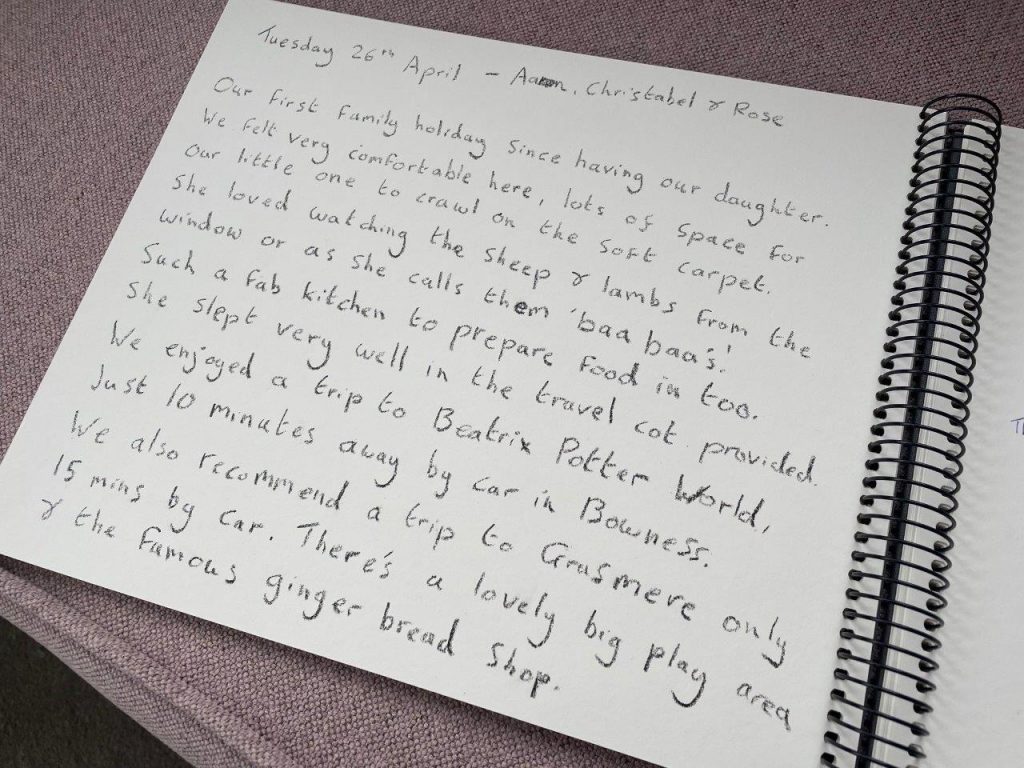 Tuesday 26th April - Aaron, Christabel & Rose
Our first family holiday since having our daughter.
We felt very comfortable here, lots of space for
our little one to crawl on the soft carpet.
She loved watching the sheep & lambs from the
window or as she calls them 'baa baa's'!
Such a fab kitchen to prepare food in too.
She slept very well in the travel cot provided.
We enjoyed a trip to Beatrix Potter World,
Just 10 minutes away by car in Bowness.
We also recommend a trip to Grasmere only
15 mins by car. There's a lovely big play area
& the famous ginger bread shop.